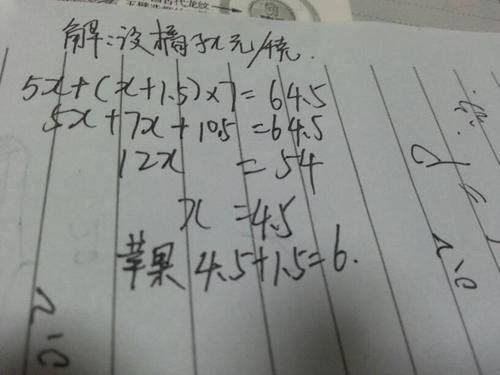 解:设橘子x元/千克.
5x+(x+1.5)×7=64.5
5x+7x+10.5=64.5
12x=54
x=4.5
苹果 4.5+1.5=6.